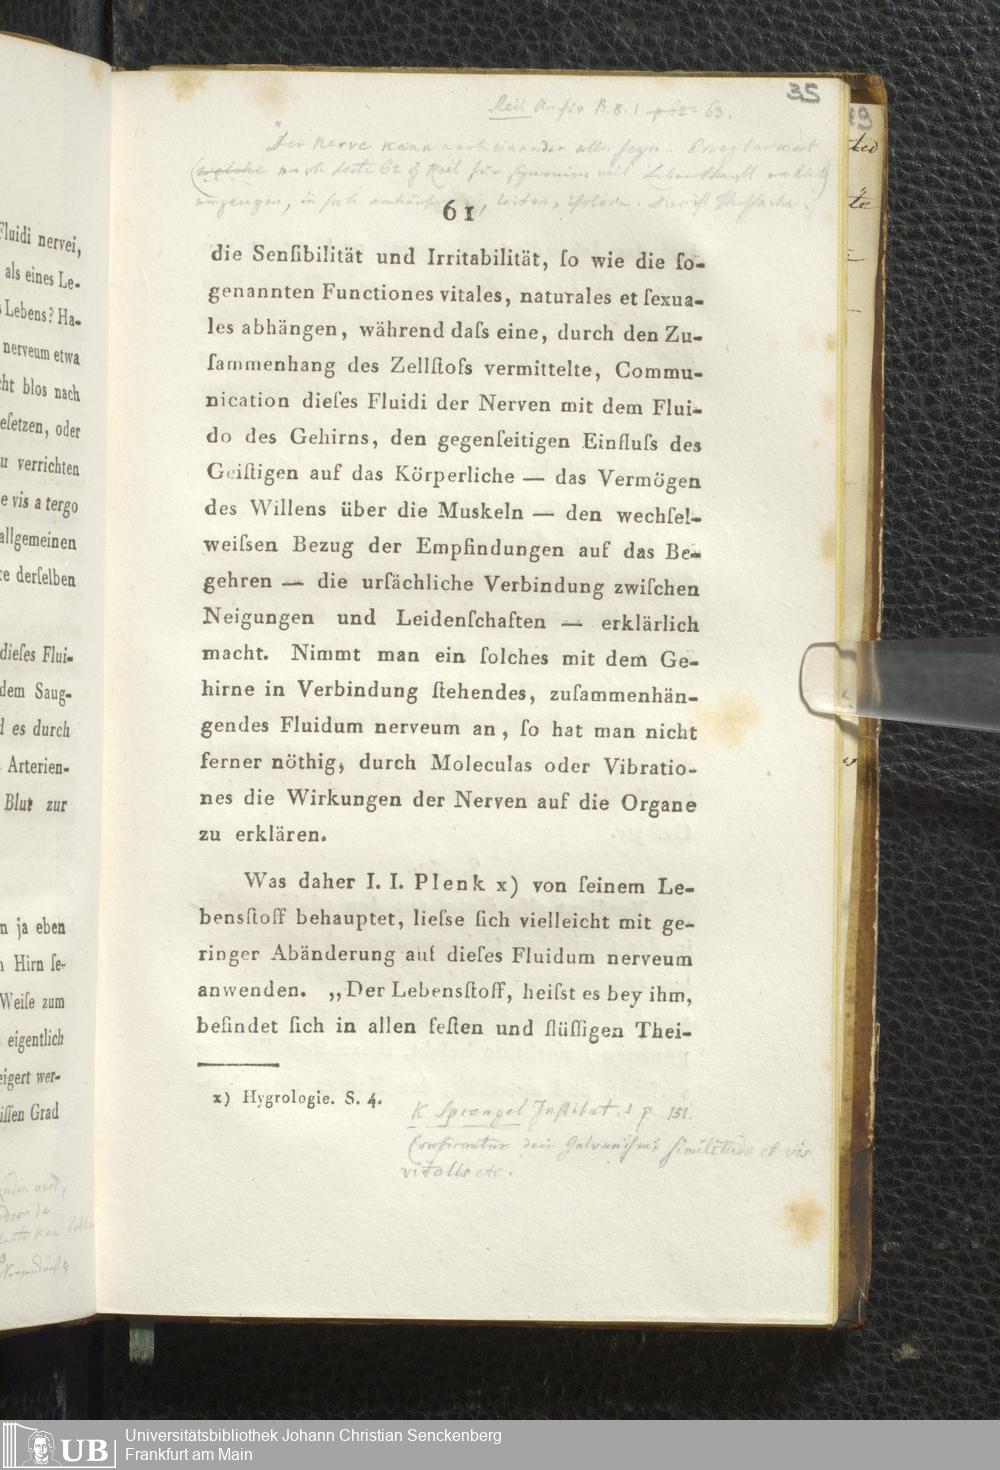 Fluidi nervei,
als eines Le-
Lebens? Ha-
nerveum etwa
blos nach
eſetzen, oder
u verrichten
e vis a tergo
allgemeinen
derſelben
dieſes Flui-
dem Saug-
es durch
Arterien-
Blut zur
ja eben
Hirn ſe-
Weiſe zum
eigentlich
eigert wer-
iſſen Grad
35
Reil Archiv B. 8. 1 p 62 - 63.
"Der Nerve kann nacheinander alles
nach Seite 62 Reil
, leiten, iſoliren.
61
die Senſibilität und Irritabilität, ſo wie die ſo-
genannten Functiones vitales, naturales et ſexua-
les abhängen, während daſs eine, durch den Zu-
ſammenhang des Zellſtoſs vermittelte, Commu-
nication dieſes Fluidi der Nerven mit dem Flui-
do des Gehirns, den gegenſeitigen Einfluſs des
Geiſtigen auf das Körperliche — das Vermögen
des Willens über die Muskeln — den wechſel-
weiſsen Bezug der Empfindungen auf das Be-
gehren — die urſächliche Verbindung zwiſchen
Neigungen und Leidenſchaften — erklärlich
macht. Nimmt man ein ſolches mit dem Ge-
hirne in Verbindung ſtehendes, zuſammenhän-
gendes Fluidum nerveum an, ſo hat man nicht
ferner nöthig, durch Moleculas oder Vibratio-
nes die Wirkungen der Nerven auf die Organe
zu erklären.
Was daher I. I. Plenk x) von ſeinem Le-
bensſtoff behauptet, lieſse ſich vielleicht mit ge-
ringer Abänderung auf dieſes Fluidum nerveum
anwenden. „Der Lebensſtoff, heiſst es bey ihm,
befindet ſich in allen feſten und flüſſigen Thei-
x) Hygrologie. S. 4.
K Sprengel Inſtitut. 1 p 151.
Confirmatur Galvanismi ſimilitudo et vis
vitalis etc.
Universitätsbibliothek Johann Christian Senckenberg
Frankfurt am Main
UB